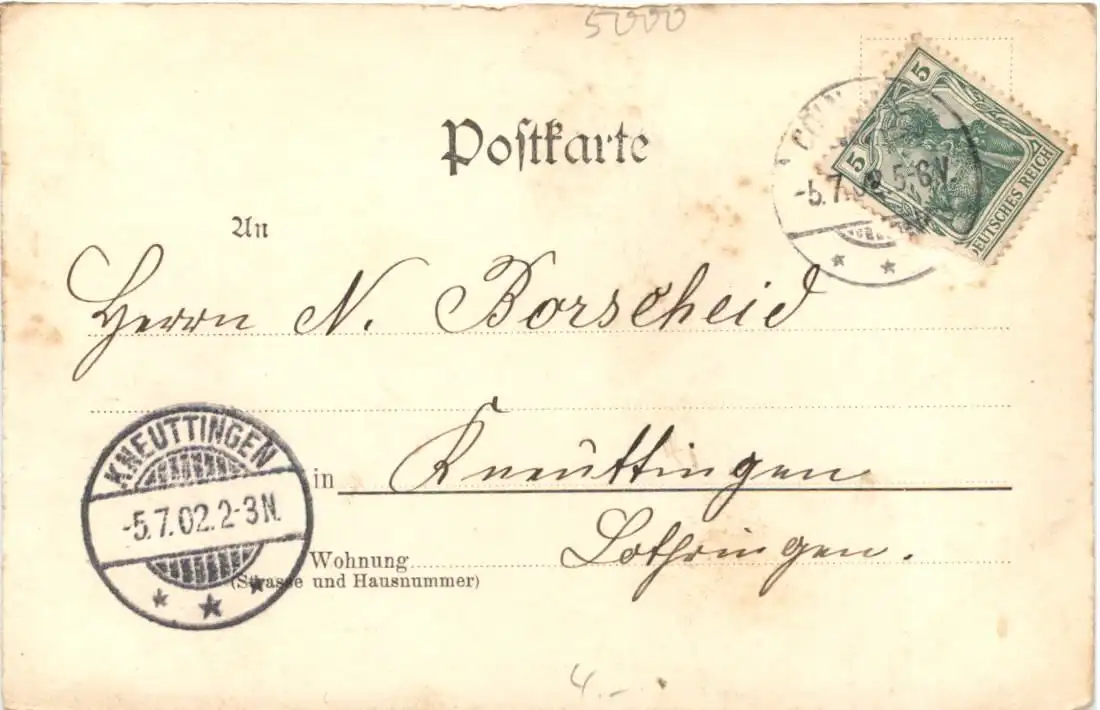 5000
Postkarte
5
5
DEUTSCHES REICH
CÖLN
-5.7.02. 5-6N.
An
Herrn N. Borscheid
KNEUTTINGEN
-5.7.02.2-3N.
in Kneuttingen
Lothringen.
Wohnung
(Strasse und Hausnummer)
4.-